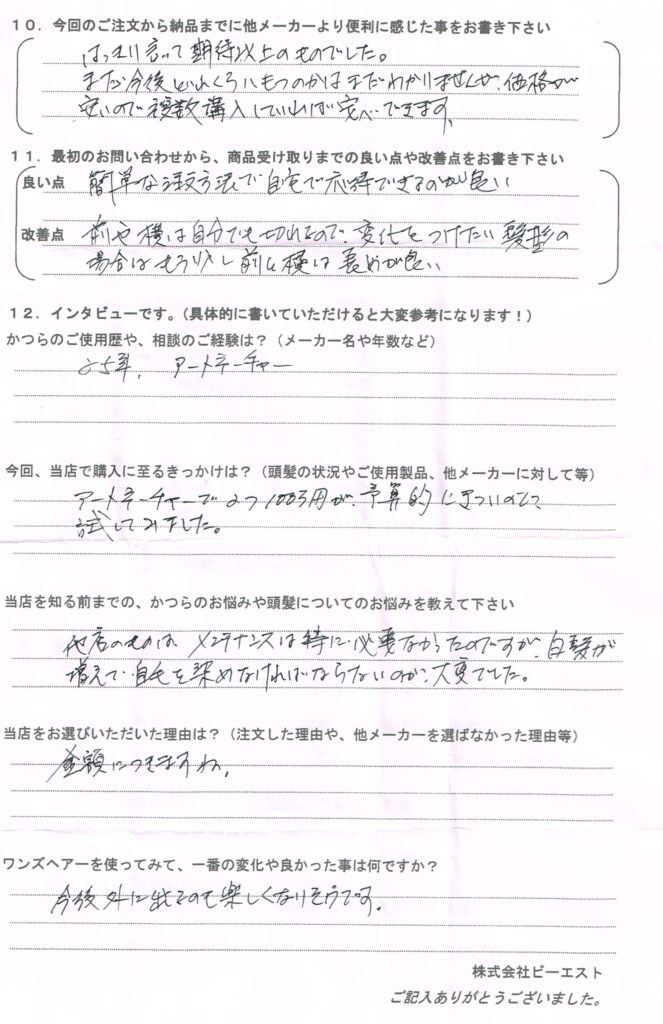 １０．今回のご注文から納品までに他メーカーより便利に感じた事をお書き下さい
はっきり言って期待以上のものでした。
まだ今後どれくらいもつのかはまだわかりませんが、価格が
安いので複数購入していれば安心できます。
１１．最初のお問い合わせから、商品受け取りまでの良い点や改善点をお書き下さい
良い点 簡単な注文方法で自宅で応得できるのが良い
改善点 前や横は自分でも切れるので、変化をつけたい髪型の
場合はもう少し前と横は長めが良い
１２．インタビューです。（具体的に書いていただけると大変参考になります！）
かつらのご使用歴や、相談のご経験は？（メーカー名や年数など）
25年、アートネーチャー
今回、当店で購入に至るきっかけは？（頭髪の状況やご使用製品、他メーカーに対して等）
アートネーチャーで2つ100万円が、予算的にきついので
試してみました。
当店を知る前までの、かつらのお悩みや頭髪についてのお悩みを教えて下さい
他店のものは メンテナンスは特に必要なかったのですが、白髪が
増えて自毛を染めなければならないのが、大変でした。
当店をお選びいただいた理由は？（注文した理由や、他メーカーを選ばなかった理由等）
金額につきますね。
ワンズヘアーを使ってみて、一番の変化や良かった事は何ですか？
今後外に出るのも楽しくなりそうです。
株式会社ビーエスト
ご記入ありがとうございました。